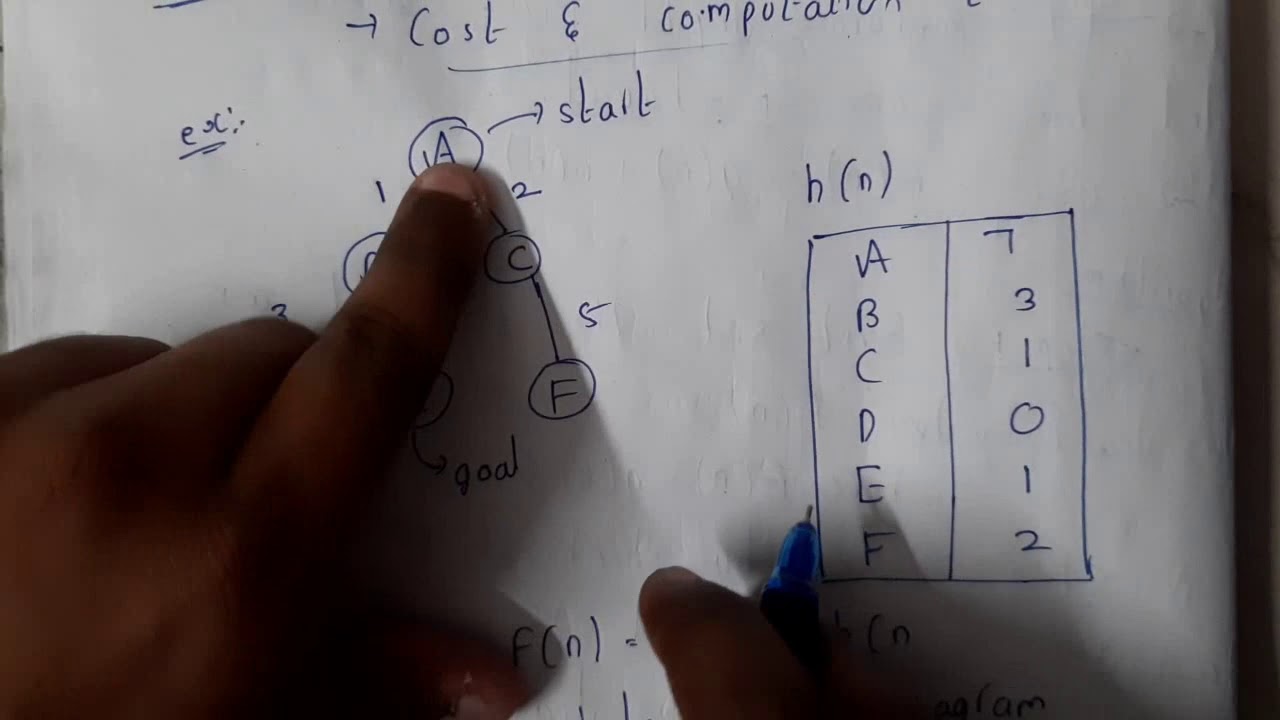 → Cost & computation
ex:.
A → start
1 2
C
3 5
F
→ goal
h(n)
A 7
B 3
C 1
D 0
E 1
F 2
F(n) = h(n
agram